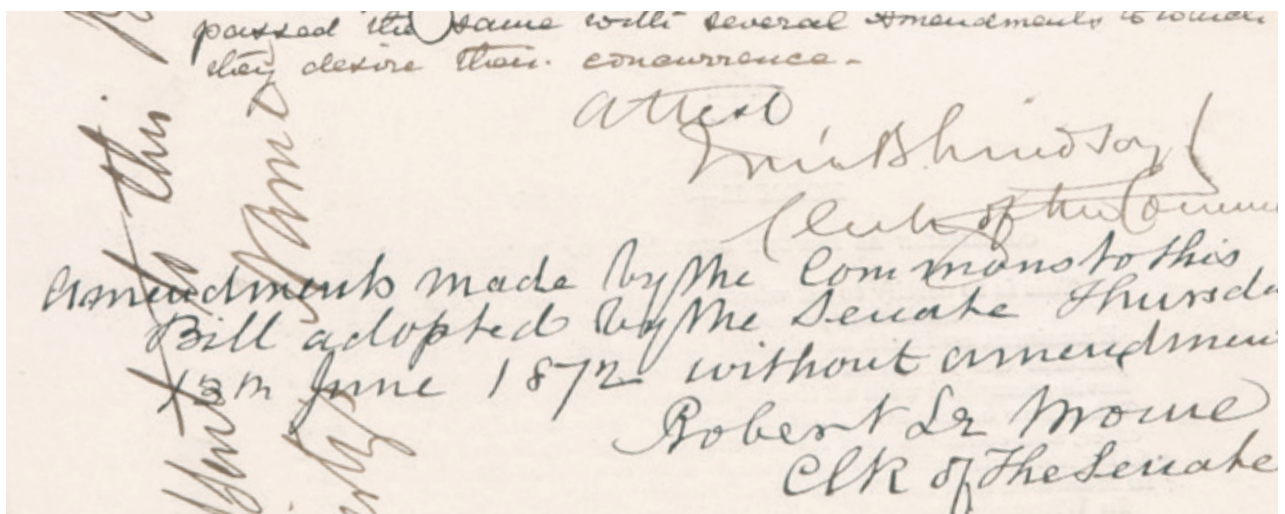 passed the same with several Amendments to which
they desire their concurrence.-
Attest
Wm B Lindsay
Clerk of the Commo
Amendments made by the Commons to this
Bill adopted by the Senate Thursda
13th June 1872 without amendmen
Robert Le Moine
Clk of The Senate
to this
Name